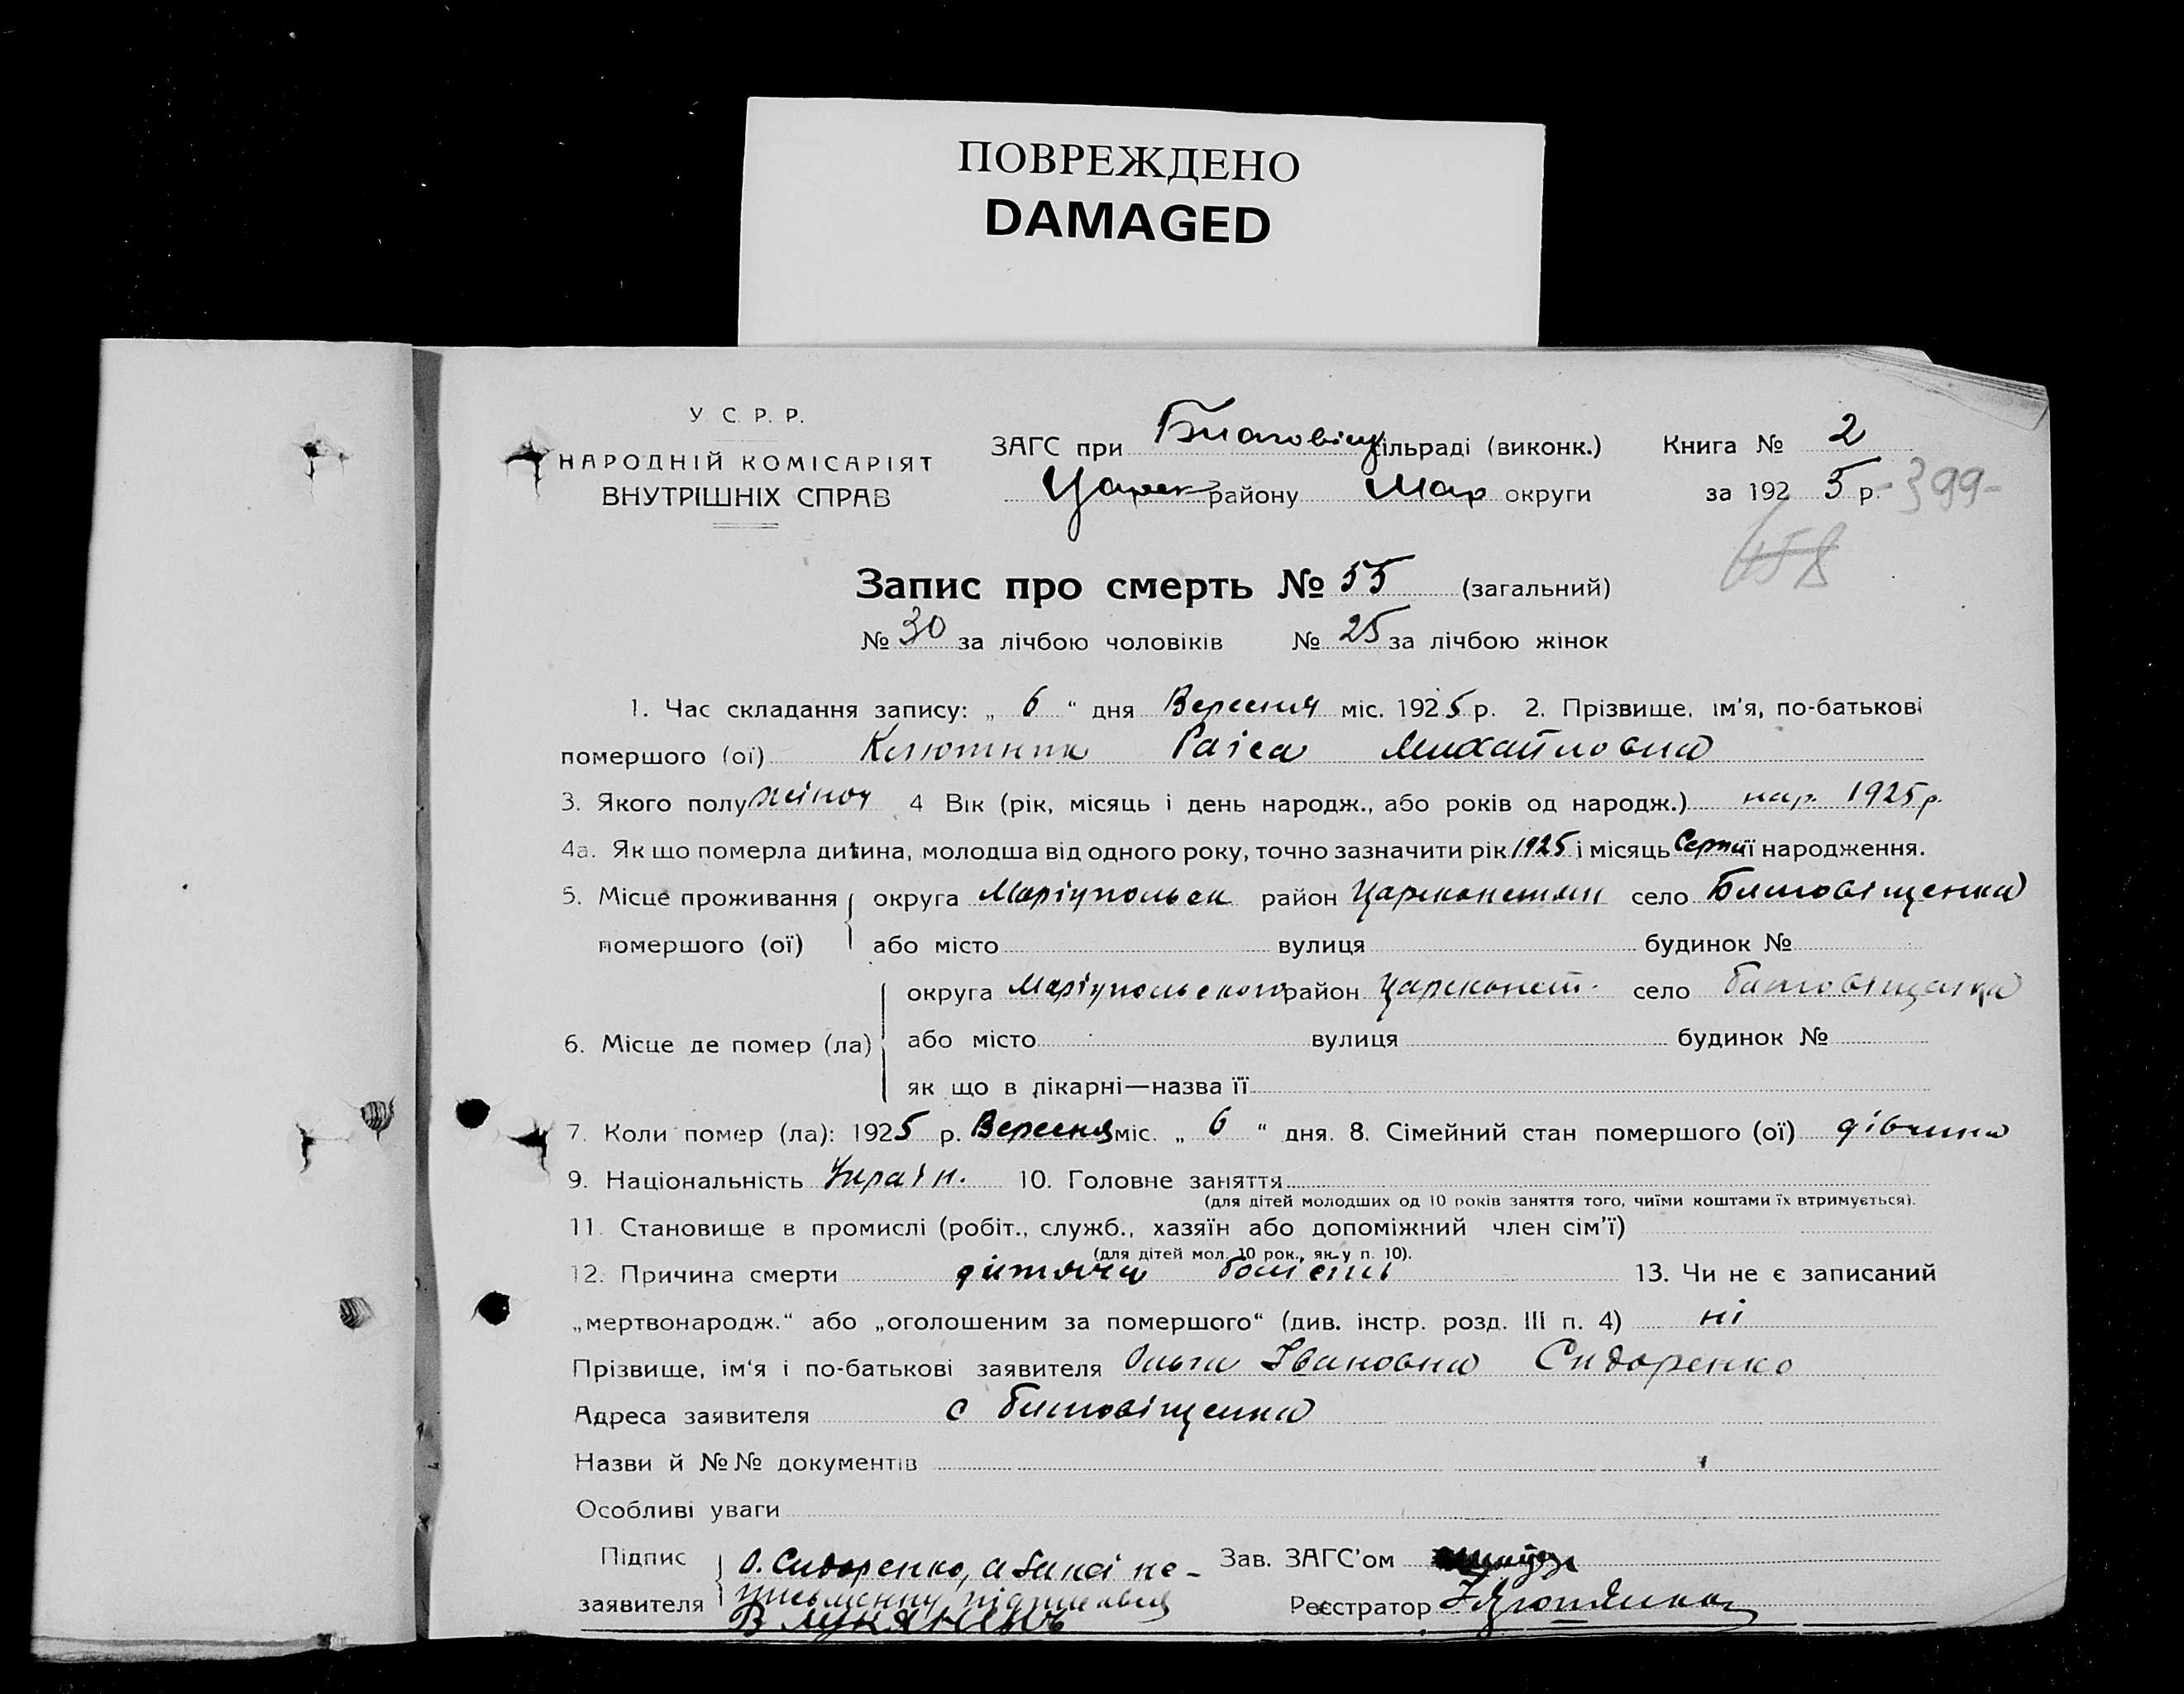 ПОВРЕЖДЕНО
DAMAGED
У С. Р. Р.
НАРОДНІЙ КОМІСАРІЯТ
ВНУТРІШНІХ СПРАВ
ЗАГС при Благовіщ сільраді (виконк.) Книга № 2
Царек району Мар округи за 1925 р. -399-
458
Запис про смерть № 55 (загальний)
№ 30 за лічбою чоловіків № 25 за лічбою жінок
1. Час складання запису: „ 6 “ дня Вересня міс. 1925 р. 2. Прізвище, ім'я, по-батькові
помершого (ої) Раїса Михайловна
3. Якого полу жіноч 4 Вік (рік, місяць і день народж., або років од народж.) нар. 1925 р.
4а. Як що померла дитина, молодша від одного року, точно зазначити рік 1925 і місяць Серпн її народження.
5. Місце проживання округа Маріупольск район Цареконстян село Благовіщенка
помершого (ої) або місто вулиця будинок №
округа Маріупольского район Цареконст. село Благовіщенка
6. Місце де помер (ла) або місто вулиця будинок №
як що в лікарні—назва її
7. Коли помер (ла): 1925 р. Вересня міс. „ 6 “ дня. 8. Сімейний стан помершого (ої) дівчина
9. Національність Україн. 10. Головне заняття
(для дітей молодших од 10 років заняття того, чиїми коштами їх втримується).
11. Становище в промислі (робіт., служб., хазяїн або допоміжний член сім'ї)
(для дітей мол. 10 рок., як у п. 10).
12. Причина смерти дитяча болість 13. Чи не є записаний
„мертвонародж.“ або „оголошеним за помершого“ (див. інстр. розд. III п. 4) ні
Прізвище, ім'я і по-батькові заявителя Ольга Івановна Сидоренко
Адреса заявителя с Благовіщенка
Назви й №№ документів
Особливі уваги
Підпис О. Сидоренко, а за неї не- Зав. ЗАГС'ом
заявителя письменну підписався Реєстратор
В Лукяненко